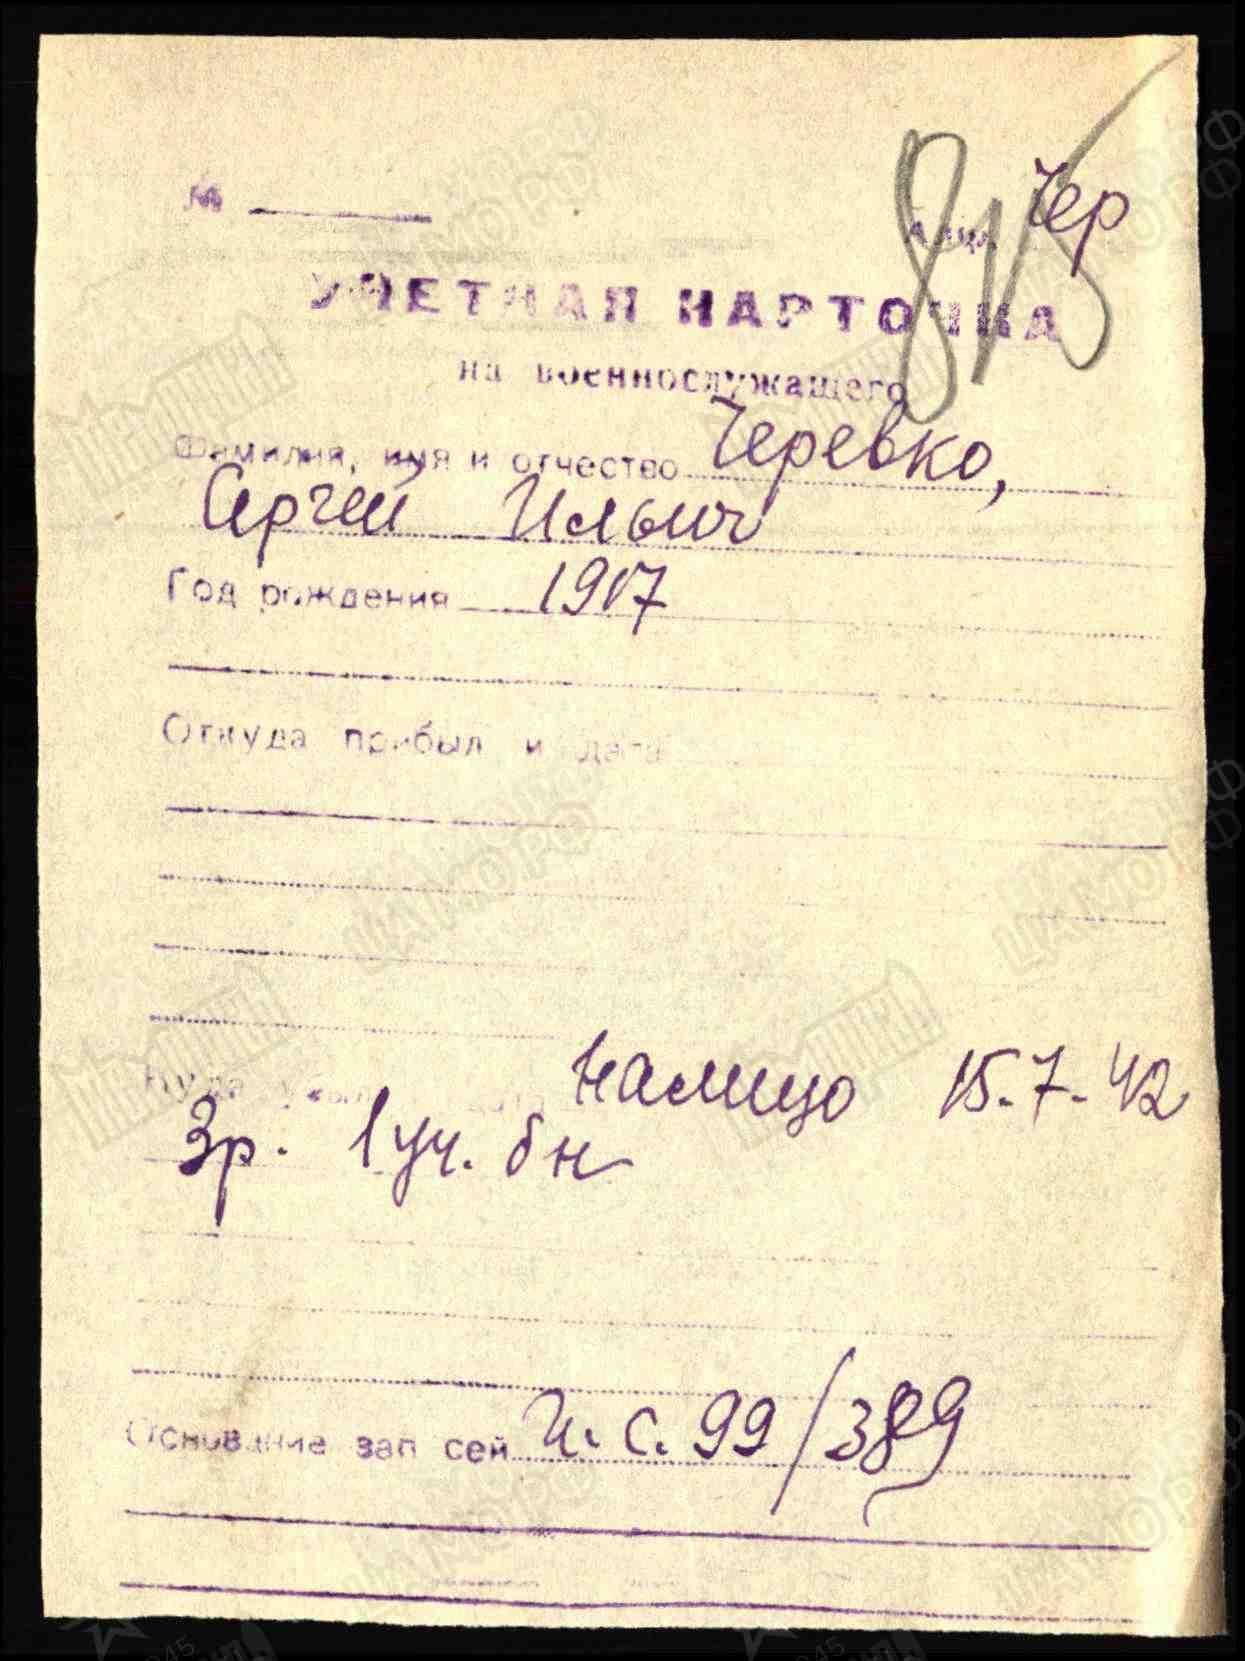 №
Алф. Чер
815
УЧЕТНАЯ КАРТОЧКА
на военнослужащего
Фамилия, имя и отчество Черевко,
Сергей Ильич
Год рождения 1917
Откуда прибыл и дата
Куда убыл и дата налицо 15.7.42
Зр. 1 уч. бн
Основание записей И.С. 99/389